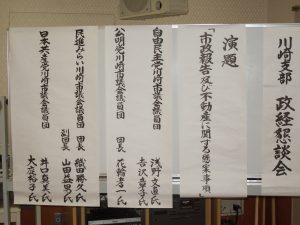 川崎支部 政経懇談会
演題
「市政報告及び不動産に関する懸案事項」
自由民主党川崎市議会議員団 浅野文直氏
吉沢章子氏
公明党川崎市議会議員団 花輪孝一氏
民進みらい川崎市議会議員団 団長 織田勝久氏
副団長 山田益男氏
日本共産党川崎市議会議員団 井口真美氏
大庭裕子氏